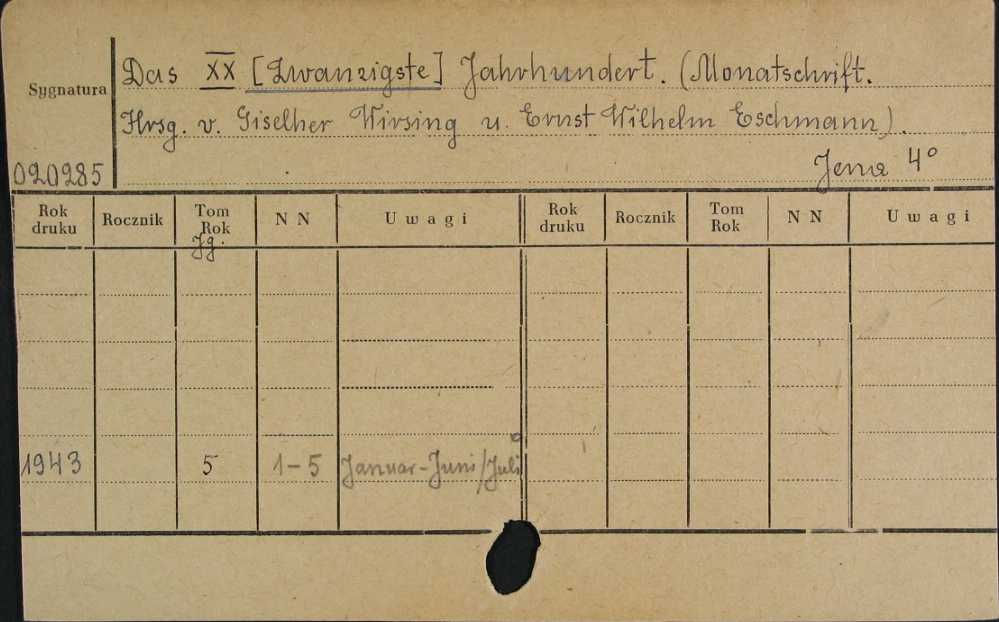 Das XX [Zwanzigste] Jahrhundert. (Monatschrift.
Hrsg. v. Giselher Wirsing u. Ernst Wilhelm Eschmann).
Jena 4°
Sygnatura
020285
Rok druku Rocznik Tom Rok N N Uwagi Rok druku Rocznik Tom Rok N N Uwagi
Jg.
1943 5 1-5 Januar-Juni/Juli